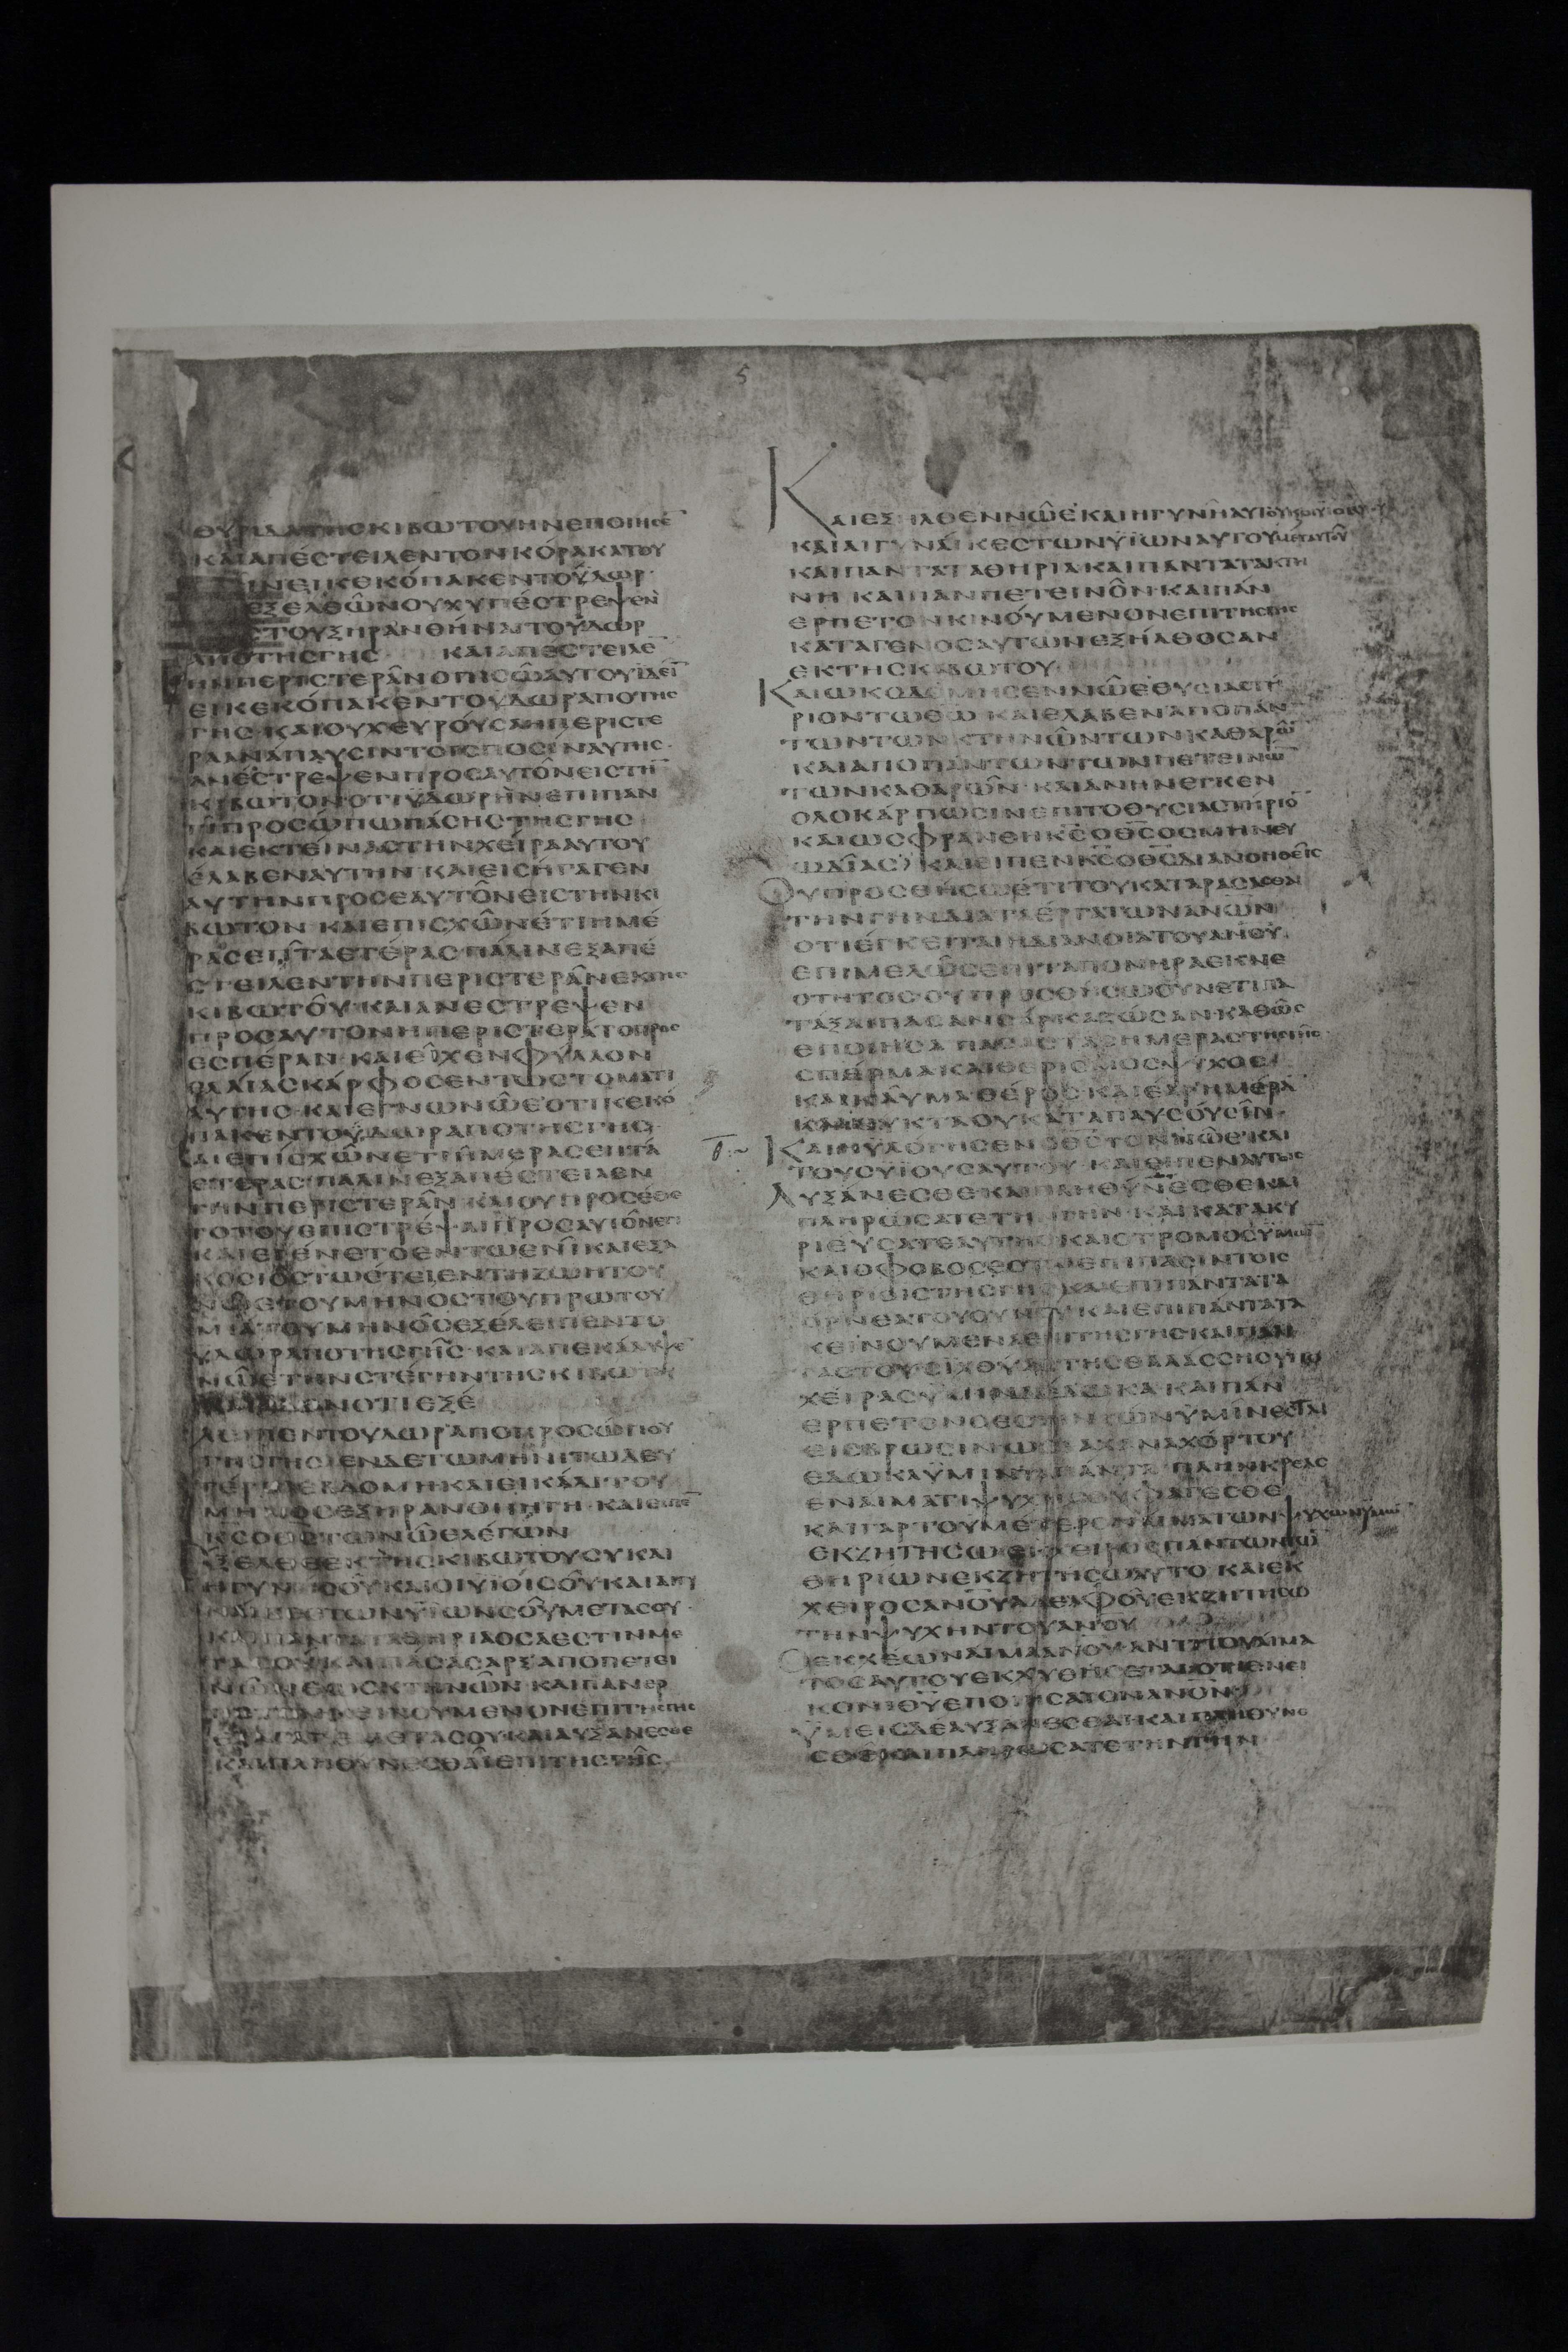 5
ΘΥΡΙΔΑΤΗΣΚΙΒΩΤΟΥΗΝΕΠΟΙΗΣΕ̅
ΚΑΙΑΠΈΣΤΕΙΛΕΝΤΟΝΚΌΡΑΚΑΤΟΥ
ΕΙΚΕΚΌΠΑΚΕΝΤΟΫ́ΔΩΡ·
ΕΞΕΛΘΩ͂ΝΟΥΧΥΠΈΣΤΡΕΨΕΝ
ΤΟΥΞΗΡΑΝΘΉΝΑΙΤΟΫ́ΔΩΡ
ΑΠΟΤΗΣΓΗΣ ΚΑΙΑΠΕΣΤΕΙΛΕ̅
ΤΗΝΠΕΡΙΣΤΕΡΑ͂ΝΟΠΙΣΩ͂ΑΥΤΟΥΙΔΕΙ̅
ΕΙΚΕΚΌΠΑΚΕΝΤΟΫ́ΔΩΡΑΠΟΤΗΣ
ΓΗΣ·ΚΑΙΟΥΧΕΥΡΟΥ͂ΣΑΗΠΕΡΙΣΤΕ
ΡΑΑΝΆΠΑΥΣΙΝΤΟΙΣΠΟΣΊΝΑΥΤΗΣ·
ΑΝΈΣΤΡΕΨΕΝΠΡΟΣΑΥΤΟ͂ΝΕΙΣΤΗ̅
ΚΙΒΩΤΟΝΟΤΙΫ́ΔΩΡΗ͂ΝΕΠΙΠΑΝ
ΤΙΠΡΟΣΏΠΩΠΆΣΗΣΤΗΣΓΗΣ·
ΚΑΙΕΚΤΕΙΝΑΣΤΗΝΧΕΙ͂ΡΑΑΥΤΟΥ
ΈΛΑΒΕΝΑΥΤΗΝ ΚΑΙΕΙΣΉΓΑΓΕΝ
ΑΥΤΗΝΠΡΟΣΕΑΥΤΟ͂ΝΕΙΣΤΗΝΚΙ
ΒΩΤΟΝ ΚΑΙΕΠΙΣΧΩ͂ΝΈΤΙΗΜΈ
ΡΑΣΕΠΤΑΕΤΈΡΑΣΠΆΛΙΝΕΞΑΠΈ
ΣΤΕΙΛΕΝΤΗΝΠΕΡΙΣΤΕΡΑ͂ΝΕΚΤΗΣ
ΚΙΒΩΤΟΥ͂ ΚΑΙΑΝΕΣΤΡΕΨΕΝ
ΠΡΟΣΑΥΤΟΝΗΠΕΡΙΣΤΕΡΆΤΟΠΡΟΣ
ΕΣΠΈΡΑΝ·ΚΑΙΕΙ͂ΧΕΝΦΎΛΛΟΝ
ΕΛΑΙΑΣΚΆΡΦΟΣΕΝΤΩΣΤΟΜΑΤΙ
ΑΥΤΗΣ·ΚΑΙΕΓΝΩΝΩ͂ΕΟΤΙΚΕΚΌ
ΠΑΚΕΝΤΟΫ́ΔΩΡΑΠΟΤΗΣΓΗΣ·
ΑΙΕΠΙΣΧΩ͂ΝΕΤΙΗΜΕΡΑΣΕΠΤΆ
ΕΤΕΡΑΣΠΑΛΙΝΕΞΑΠΈΣΤΕΙΛΕΝ
ΤΗΝΠΕΡΙΣΤΕΡΑ͂Ν·ΚΑΙΟΥΠΡΟΣΈΘΕ
ΤΟΤΟΥΕΠΙΣΤΡΈΨΑΙΠΡΟΣΑΥΤΟ͂ΝΕΤΙ
ΚΑΙΕΓΈΝΕΤΟΕΝΤΩΕΝΙ͂ΚΑΙΕΞΑ
ΚΟΣΙΟΣΤΩΕΤΕΙΕΝΤΗΖΩΗΤΟΥ
ΝΩΕΤΟΥΜΗΝΟΣΤΟΥΠΡΩΤΟΥ
ΜΙΑΤΟΥΜΗΝΌΣΕΞΈΛΕΙΠΕΝΤΟ
ΥΔΩΡΑΠΟΤΗΣΓΗ͂Σ·ΚΑΙΑΠΕΚΆΛΥΨΕ
ΝΩ͂ΕΤΗΝΣΤΈΓΗΝΤΗΣΚΙΒΩΤΟΥ
ΟΤΙΕΞΈ
ΛΕΙΠΕΝΤΟΥΔΩΡΑΠΟΠΡΟΣΏΠΟΥ
ΤΗΣΓΗΣ·ΕΝΔΕΤΩΜΗΝΙΤΩΔΕΥ
ΤΈΡΩΕΒΔΟΜΗΚΑΙΕΙΚΆΔΙΤΟΥ
ΜΗΝΟΣΕΞΗΡΑΝΘΗΗΓΗ·ΚΑΙΕΙΠΕ̅
ΚΣΟΘΣΤΩΝΩ͂ΕΛΈΓΩΝ
ΕΞΕΛΘΕΕΚΤΗΣΚΙΒΩΤΟΥΣΥΚΑΙ
ΗΓΥΝΗΣΟΥ͂ΚΑΙΟΙΥΙΟΊΣΟΥ͂ΚΑΙΑΙΓΥ
ΤΩΝΫΙΩΝΣΟΥ͂ΜΕΤΑΣΟΥ·
ΚΑΙΠΑΝΤΑΤΑΘΗΡΙΑΟΣΑΕΣΤΙΝΜΕ
ΤΑΣΟΥ͂ΚΑΙΠΑΣΑΣΑΡΞΑΠΟΠΕΤΕΙ
ΝΩ͂ΝΕΩΣΚΤΗΝΩ͂Ν·ΚΑΙΠΑΝΕΡ
ΚΙΝΟΥΜΕΝΟΝΕΠΙΤΗΣΓΗΣ
ΜΕΤΑΣΟΥΚΑΙΑΥΞΑΝΕΣΘΕ
ΚΑΙΠΛΗΘΥΝΕΣΘΑΙΕΠΙΤΗΣΓΗ͂Σ
ΚΑΙΕΞΗΛΘΕΝΝΩ͂ΕΚΑΙΗΓΥΝΗΑΥΤΟΥΚΑΙΟΙΥΙΟΙΑΥΤΟΥ
ΚΑΙΑΙΓΥΝΑΙ͂ΚΕΣΤΩΝΫΙΩΝΑΥΤΟΥΜΕΤΑΥΤΟΥ͂
ΚΑΙΠΑΝΤΑΤΑΘΗΡΙΑΚΑΙΠΑΝΤΑΤΑΚΤΗ
ΝΗ·ΚΑΙΠΑΝΠΕΤΕΙΝΟ͂Ν·ΚΑΙΠΆΝ
ΕΡΠΕΤΟΝΚΙΝΟΎΜΕΝΟΝΕΠΙΤΗΣΓΗΣ
ΚΑΤΑΓΕΝΟΣΑΥΤΩΝΕΞΉΛΘΟΣΑΝ
ΕΚΤΗΣΚΙΒΩΤΟΥ·
ΚΑΙΩΚΟΔΟΜΗΣΕΝΝΩ͂ΕΘΥΣΙΑΣΤΗ
ΡΙΟΝΤΩΘΩ·ΚΑΙΕΛΑΒΕΝΑΠΟΠΆΝ
ΤΩΝΤΩΝΚΤΗΝΩ͂ΝΤΩΝΚΑΘΑΡΩ̅
ΚΑΙΑΠΟΠΆΝΤΩΝΤΩΝΠΕΤΕΙΝΩ̅
ΤΩΝΚΑΘΑΡΩ͂Ν·ΚΑΙΑΝΗΝΕΓΚΕΝ
ΟΛΟΚΆΡΠΩΣΙΝΕΠΙΤΟΘΥΣΙΑΣΤΗΡΙΟ̅
ΚΑΙΩΣΦΡΑΝΘΗΚΣΟΘΣΟΣΜΗΝΕΥ
ΩΔΊΑΣ·ΚΑΙΕΙΠΕΝΚΣΟΘΣΔΙΑΝΟΗΘΕΙΣ
ΟΥΠΡΟΣΘΗΣΩΈΤΙΤΟΥΚΑΤΑΡΑΣΑΣΘΑΙ
ΤΗΝΓΗΝΔΙΑΤΑΈΡΓΑΤΩΝΑΝΩΝ
ΟΤΙΈΓΚΕΙΤΑΙΗΔΙΑΝΟΙΑΤΟΥΑΝΟΥ
ΕΠΙΜΕΛΩ͂ΣΕΠΙΤΑΠΟΝΗΡΑΕΚΝΕ
ΟΤΗΤΟΣ·ΟΥΠΡΟΣΘΗΣΩΟΥΝΕΤΙΠΑ
ΤΆΞΑΙΠΑΣΑΝΣΑΡΚΑΖΩΣΑΝ·ΚΑΘΩ͂Σ
ΕΠΟΙΗΣΑ ΠΑΣΑΣΤΑΣΗΜΕΡΑΣΤΗΣΓΗΣ
ΣΠΈΡΜΑΚΑΙΘΕΡΙΣΜΟΣΨΥΧΟΣ
ΚΑΙΚΑΥ͂ΜΑΘΈΡΟΣΚΑΙΈΑΡΗΜΈΡΑ
ΚΑΙΝΥΚΤΑΟΥΚΑΤΑΠΑΥΣΟΥΣΙΝ·
ΚΑΙΗΥΛΌΓΗΣΕΝΟΘΣΤΟΝΝΩ͂ΕΚΑΙ
ΤΟΥΣΫΙΟΥΣΑΥΤΟΥ·ΚΑΙΕΙΠΕΝΑΥΤΟΙΣ
ΑΥΞΆΝΕΣΘΕΚΑΙΠΛΗΘΎΝΕΣΘΕΚΑΙ
ΠΛΗΡΩΣΑΤΕΤΗΝΓΗΝ·ΚΑΙΚΑΤΑΚΥ
ΡΙΕΎΣΑΤΕΑΥΤΗΣ·ΚΑΙΟΤΡΟΜΟΣΫΜΩ̅
ΚΑΙΟΦΟΒΟΣΕΣΤΑΙΕΠΙΠΑΣΙΝΤΟΙΣ
ΘΗΡΙΟΙΣΤΗΣΓΗΣΚΑΙΕΠΙΠΆΝΤΑΤΑ
ΟΡΝΕΑΤΟΥΟΥΝΟΥ·ΚΑΙΕΠΙΠΆΝΤΑΤΑ
ΚΕΙΝΟΥΜΕΝΑΕΠΙΤΗΣΓΗΣΚΑΙΠΑΝ
ΤΑΣΤΟΥΣΙΧΘΥΑΣΤΗΣΘΑΛΆΣΣΗΣΥΠΟ
ΧΕΙ͂ΡΑΣΥΜΙΝΔΕΔΩΚΑ·ΚΑΙΠΑΝ
ΕΡΠΕΤΟΝΟΕΣΤΙΝΖΩΝΫΜΊΝΕΣΤΑΙ
ΕΙΣΒΡΩΣΙΝΩΣΛΑΧΑΝΑΧΌΡΤΟΥ
ΕΔΩΚΑΫΜΙΝΤΑΠΆΝΤΑ·ΠΛΗΝΚΡΕΑΣ
ΕΝΑΙΜΑΤΙΨΥΧΗΣΟΥΦΑΓΕΣΘΕ
ΚΑΙΓΑΡΤΟΥΜΕΤΕΡΟΝΑΙΜΑΤΩΝΨΥΧΩΝΫΜΩΝ
ΕΚΖΗΤΗΣΩΕΚΧΕΙΡΟΣΠΑΝΤΩΝΤΩ̅
ΘΗΡΙΩΝΕΚΖΗΤΗΣΩΑΥΤΟ·ΚΑΙΕΚ
ΧΕΙΡΟΣΑΝΟΥΑΔΕΛΦΟΥ͂ΕΚΖΗΤΗΣΩ
ΤΗΝΨΥΧΗΝΤΟΥΑΝΟΥ
ΟΕΚΧΈΩΝΑΙΜΑΑΝΟΥ·ΑΝΤΙΤΟΥΑΙΜΑ
ΤΟΣΑΥΤΟΥΕΚΧΥΘΗΣΕΤΑΙΟΤΙΕΝΕΙ
ΚΟΝΙΘΥΕΠΟΙΗΣΑΤΟΝΑΝΟΝ
ΫΜΕΙΣΔΕΑΥΞΑΝΕΣΘΑΙΚΑΙΠΛΗΘΥΝΕ
ΣΘΕΚΑΙΠΛΗΡΩΣΑΤΕΤΗΝΓΗΝ